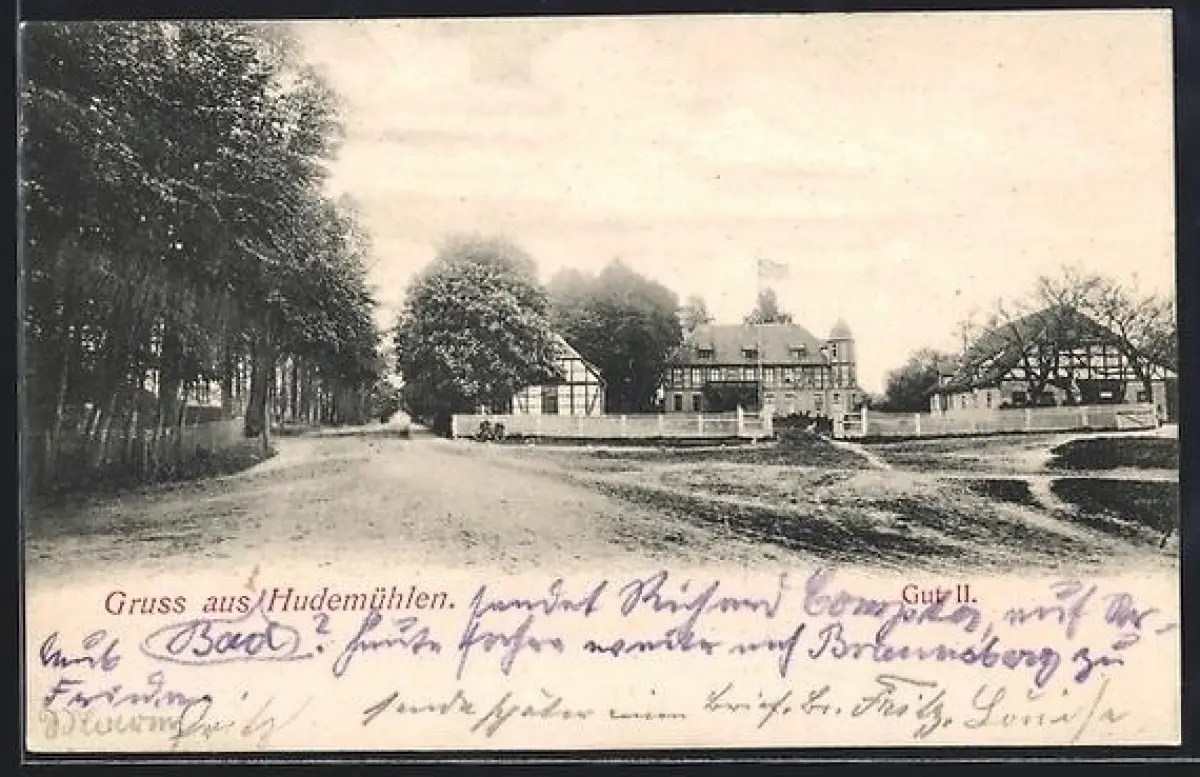 Gruss aus Hudemühlen. Gut II.
sendet Richard Compka, auf Ur-
laub Bad? Heute fahre weiter nach Braunsberg zu
Frieda
sende später einen Brief. Br. Fritz, Louise
Fritz